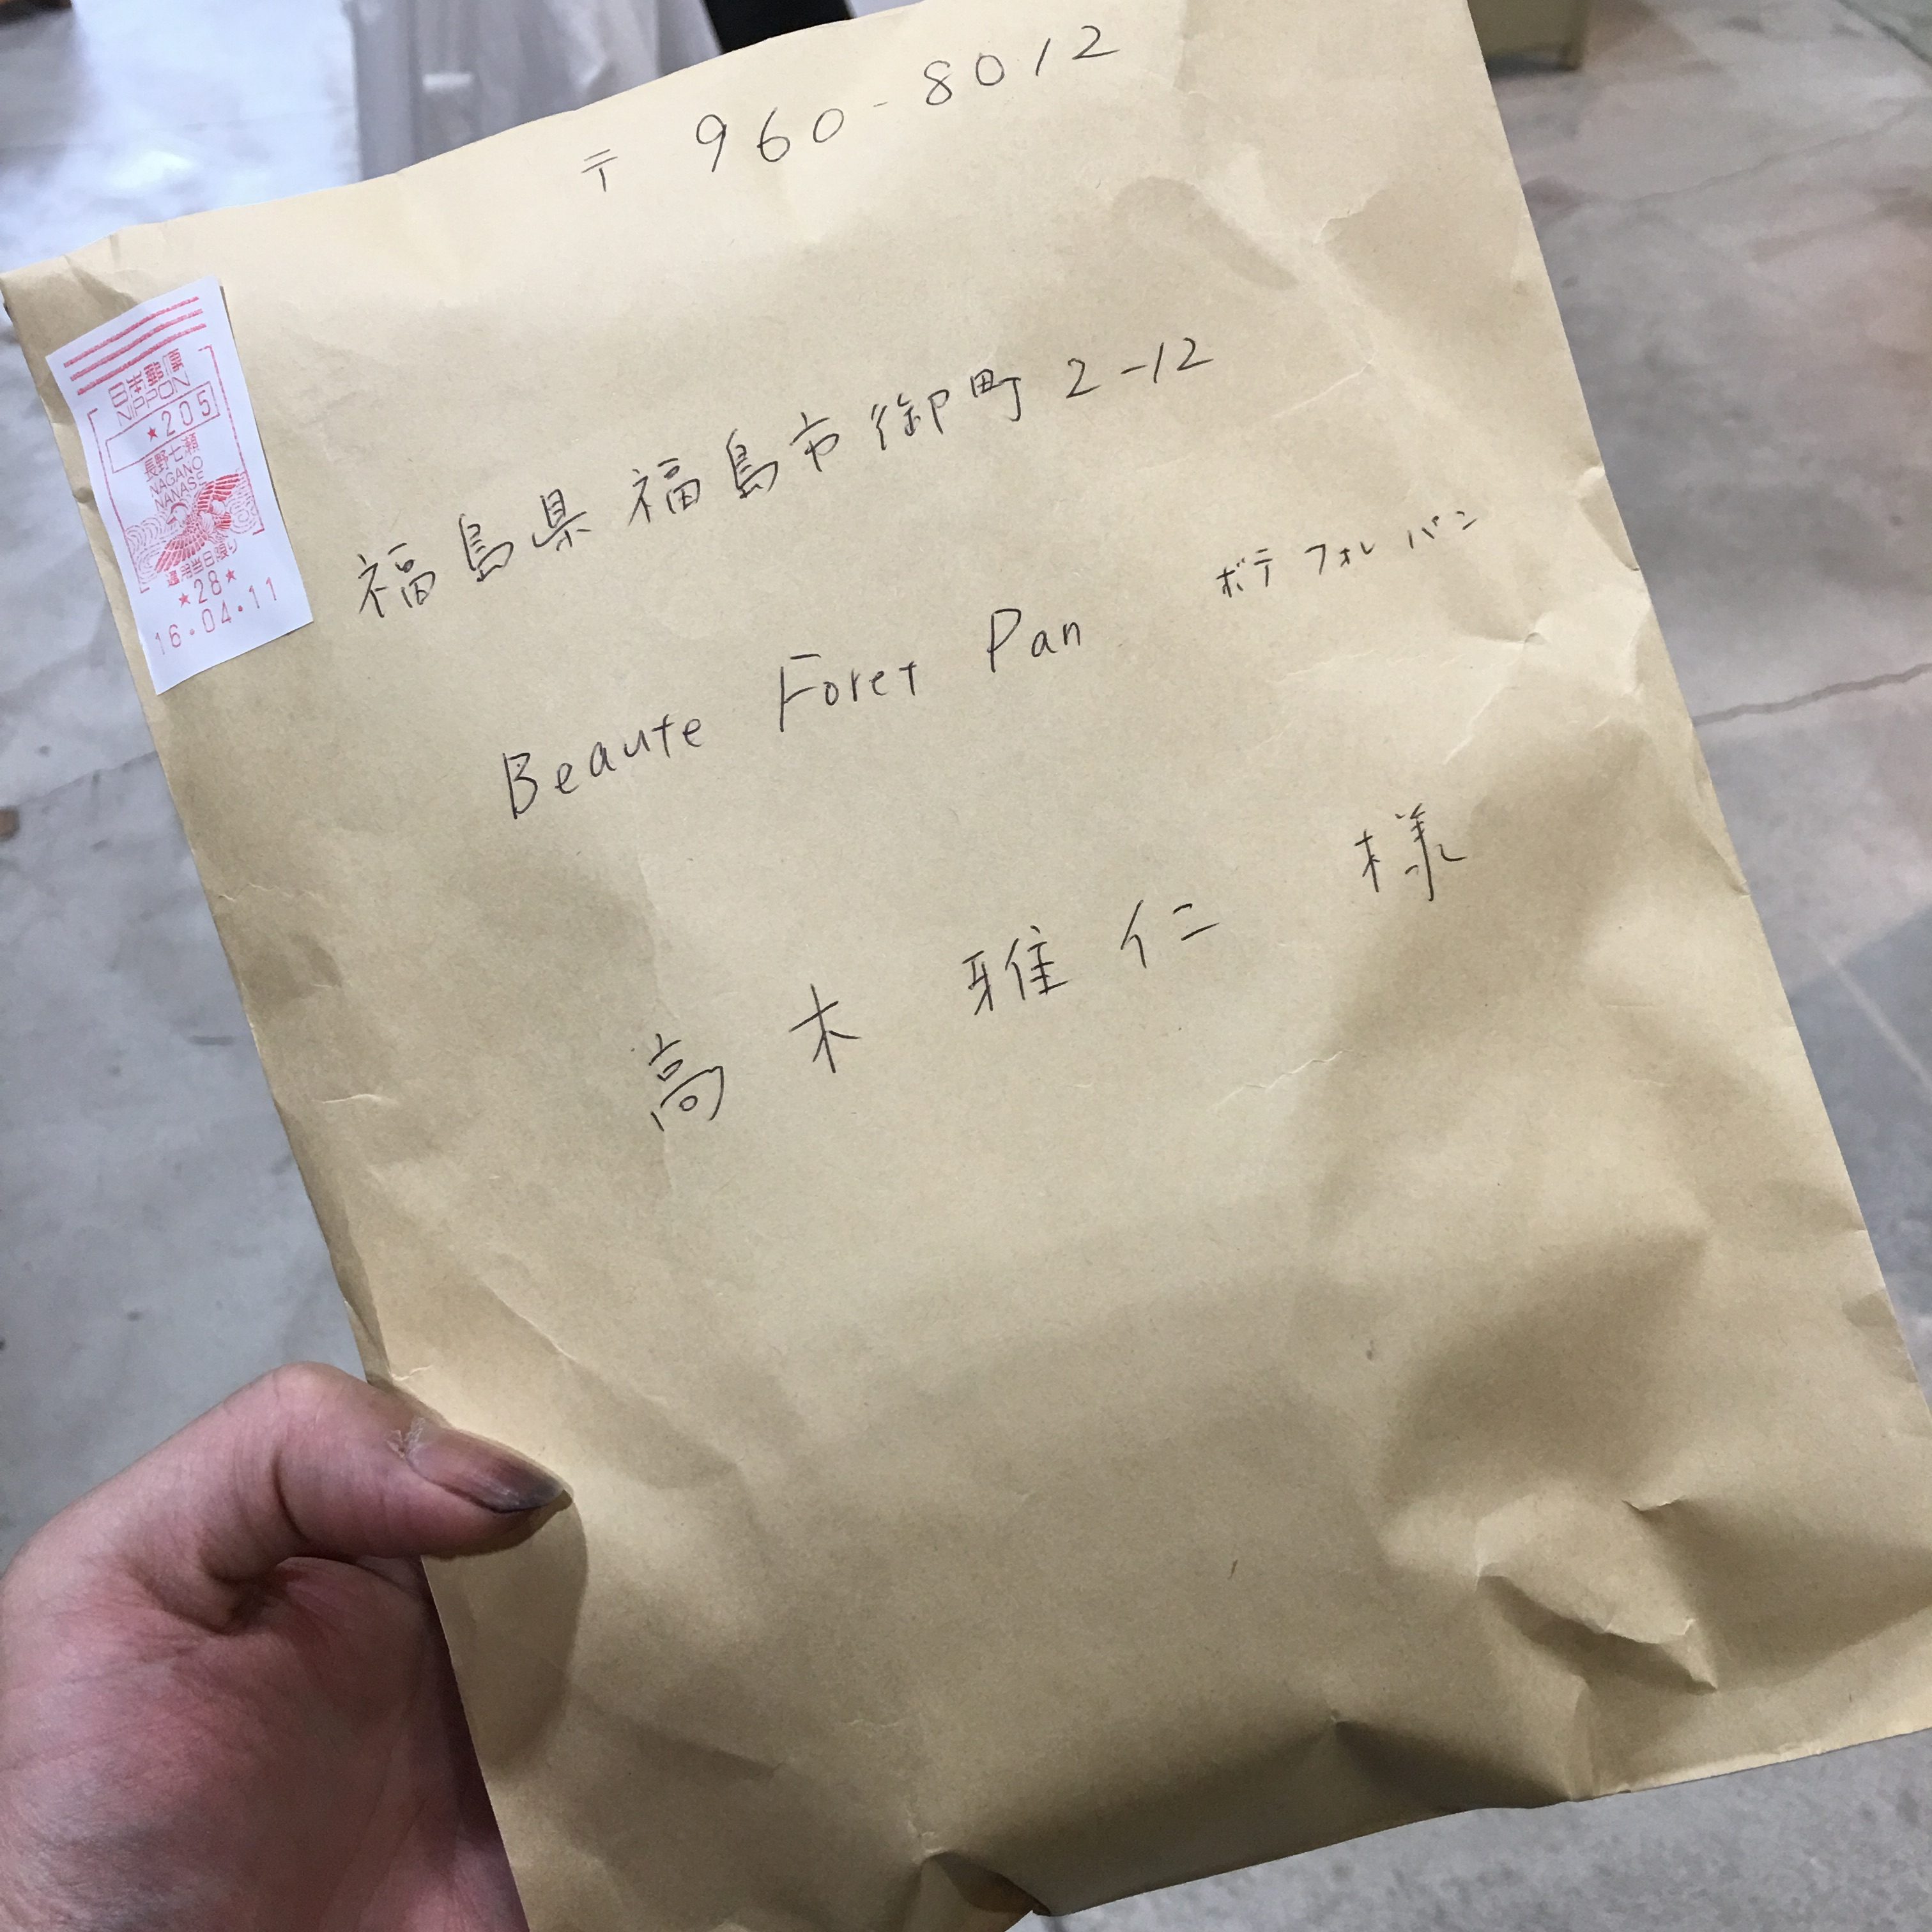 〒 960-8012
日本郵便
NIPPON
★205
長野七瀬
NAGANO
NANASE
★28★
16.04.11
福島県福島市御町2-12
Beaute Foret Pan ボテ フォレ パン
高木 雅仁 様